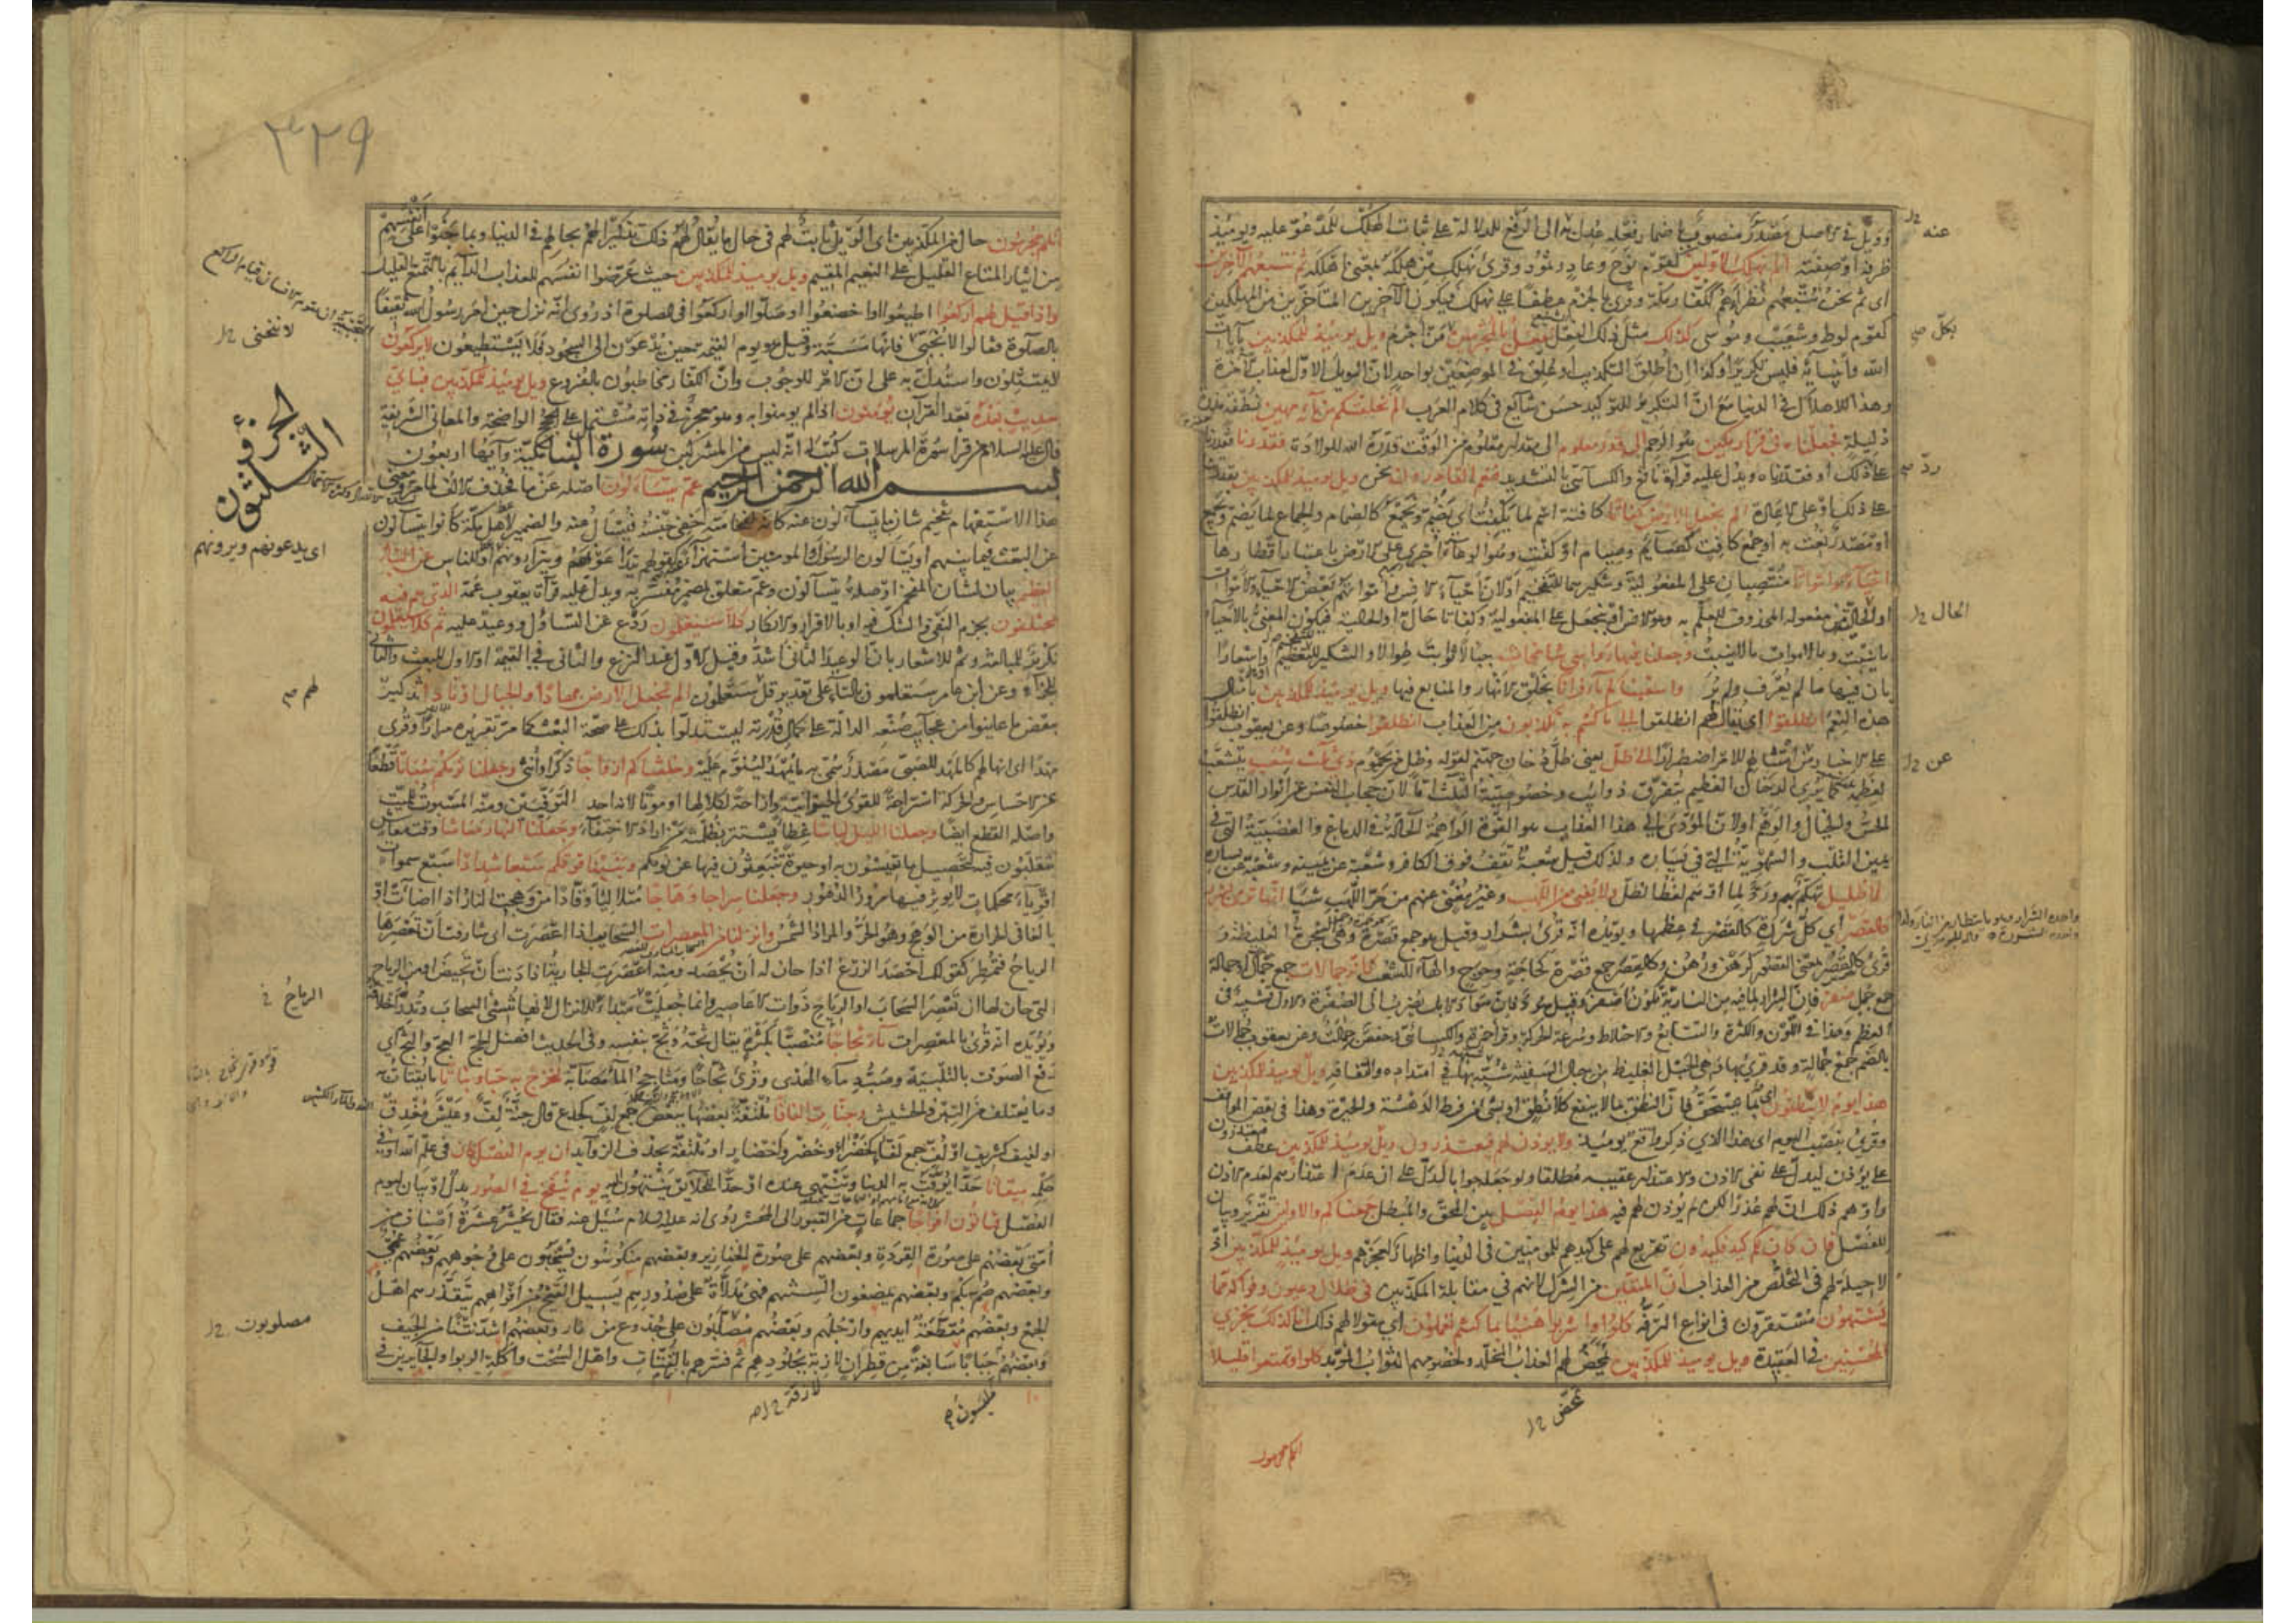 وويل في الاصل مصدر منصوب باضمار فعله عدل به الى الرفع للدلالة على ثبات الهلك للمدعو عليه ويومئذ
ظرفه او صفته الم نهلك الاولين كقوم نوح وعاد وثمود وقرئ نهلك من هلكه بمعنى اهلكه ثم نتبعهم الآخرين
اى ثم نحن نتبعهم نظراءهم ككفار مكة وقرئ بالجزم عطفا على نهلك فيكون الآخرين المتاخرين من المهلكين
كقوم لوط وشعيب وموسى كذلك مثل ذلك الفعل نفعل بالمجرمين من اجرم ويل يومئذ للمكذبين بآيات
الله وانبيائه فليس تكريرا وكذا ان اطلق التكذيب او علق في الموضعين بواحد لان الويل الاول لعذاب الآخرة
وهذا للاهلاك في الدنيا مع ان التكرير للتوكيد حسن شايع في كلام العرب الم نخلقكم من ماء مهين نطفة مذرة
ذليلة فجعلناه في قرار مكين هو الرحم الى قدر معلوم الى مقدار معلوم من الوقت قدره الله للولادة فقدرنا فقدرنا
على ذلك او فقدرناه ويدل عليه قراءة نافع والكسائى بالتشديد فنعم القادرون نحن ويل يومئذ للمكذبين بقدرتنا
على ذلك او على الاعادة الم نجعل الارض كفاتا كافتة اسم لما يكفت اى يضم ويجمع كالضمام والجماع لما يضم ويجمع
او مصدر نعت به او جمع كافت كصائم وصيام او كفت وهو الوعاء اجرى على الارض باعتبار اقطارها
احياء وامواتا منتصبان على المفعولية وتنكيرهما للتفخيم او لان احياء الانس وامواتهم بعض الاحياء والاموات
او الحالية من مفعوله المحذوف للعلم به وهو الانس او بنجعل على المفعولية وكفاتا حال او الحالية فيكون المعنى بالاحياء
ما ينبت وبالاموات مالا ينبت وجعلنا فيها رواسي شامخات جبالا ثوابت طوالا والتنكير للتعظيم او اشعارا
بان فيها ما لم يعرف ولم ير واسقيناكم ماء فراتا بخلق الانهار والمنابع فيها ويل يومئذ للمكذبين بامثال
هذه النعم انطلقوا اى يقال لهم انطلقوا الى ما كنتم به تكذبون من العذاب انطلقوا خصوصا وعن يعقوب انطلقوا
على الاخبار من امتثالهم للامر اضطرارا الى ظل يعني ظل دخان جهنم لقوله وظل من يحموم ذي ثلث شعب يتشعب
لعظمه كما ترى الدخان العظيم يتفرق ذوائب وخصوصية الثلث اما لان حجاب النفس عن انوار القدس
الحس والخيال والوهم او لان المؤدى الى هذا العذاب هو القوة الواهمة الحالة في الدماغ والغضبية التي في
يمين القلب والشهوية التي في يساره ولذلك قيل شعبة تقف فوق الكافر وشعبة عن يمينه وشعبة عن يساره
لا ظليل تهكم بهم ورد لما اوهم لفظ الظل ولا يغني من اللهب وغير مغن عنهم من حر اللهب شيئا انها ترمي بشرر
كالقصر اى كل شررة كالقصر في عظمها ويؤيده انه قرئ بشرار وقيل هو جمع قصرة وهي الشجرة الغليظة و
قرئ كالقصر بمعنى القصور كرهن ورهن وكالقصر جمع قصرة كحاجة وحوج والهاء للشعب كانه جمالات جمع جمال او جمالة
جمع جمل صفر فان الشرار لما فيه من النارية يكون اصفر وقيل سود فان سواد الابل يضرب الى الصفرة والاول تشبيه في
العظم وهذا في اللون والكثرة والتتابع والاختلاط وسرعة الحركة وقرأ حمزة والكسائى وحفص جمالة وعن يعقوب جمالات
بالضم جمع جمالة وقد قرئ بها وهي الحبل الغليظ من حبال السفينة شبهه بها في امتداده والتفافه ويل يومئذ للمكذبين
هذا يوم لا ينطقون اى بما يستحق فان النطق بما لا ينفع كلا نطق او بشئ من فرط الدهشة والحيرة وهذا في بعض المواقف
وقرئ بنصب اليوم اى هذا الذي ذكر واقع يومئذ ولا يؤذن لهم فيعتذرون ويل يومئذ للمكذبين عطف
على يؤذن ليدل على نفي الاذن والاعتذار عقيبه مطلقا ولو جعله جوابا لدل على ان عدم اعتذارهم لعدم الاذن
واوهم ذلك ان لهم عذرا لكن لم يؤذن لهم فيه هذا يوم الفصل بين المحق والمبطل جمعناكم والاولين تقرير وبيان
للفصل فان كان لكم كيد فكيدون تقريع لهم على كيدهم للمؤمنين في الدنيا واظهار لعجزهم ويل يومئذ للمكذبين اذ
لا حيلة لهم في التخلص من العذاب ان المتقين من الشرك لانهم في مقابلة المكذبين في ظلال وعيون وفواكه مما
يشتهون مستقرون في انواع الترفه كلوا واشربوا هنيئا بما كنتم تعملون اى مقولا لهم ذلك انا كذلك نجزي
المحسنين في العقيدة ويل يومئذ للمكذبين تمحض لهم العذاب المخلد ولخصومهم الثواب المؤبد كلوا وتمتعوا قليلا
عنه
بكل
رد
الحال
عن
تمحض
انكم مجرمون
٣٢٩
انكم مجرمون حال من المكذبين اى الويل ثابت لهم في حال ما يقال لهم ذلك تذكيرا لهم بحالهم في الدنيا وبما جنوا على انفسهم
من ايثار المتاع القليل على النعيم المقيم ويل يومئذ للمكذبين حيث عرضوا انفسهم للعذاب الدائم بالتمتع القليل
واذا قيل لهم اركعوا اطيعوا او اخضعوا او صلوا او اركعوا في الصلوة اذ روى انه نزل حين امر رسول الله ثقيفا
بالصلوة فقالوا لا نجبى فانها سبة وقيل هو يوم القيمة حين يدعون الى السجود فلا يستطيعون لا يركعون
لا يمتثلون واستدل به على ان الامر للوجوب وان الكفار مخاطبون بالفروع ويل يومئذ للمكذبين فباى
حديث بعده بعد القرآن يؤمنون اذا لم يومنوا به وهو معجز في ذاته مشتمل على الحجج الواضحة والمعانى الشريفة
قال عليه السلام من قرأ سورة المرسلات كتب له انه ليس من المشركين سورة النبا مكية وآيها اربعون
بسم الله الرحمن الرحيم عم يتساءلون اصله عن ما فحذف الالف لما مر ومعنى
هذا الاستفهام تفخيم شان ما يتساءلون عنه كانه لفخامته خفي جنسه فيسأل عنه والضمير لاهل مكة كانوا يتساءلون
عن البعث فيما بينهم او يسألون الرسول والمومنين استهزاء كقولهم يتداعونهم ويتراءونهم او للناس عن النبأ
العظيم بيان لشان المفخم او صلة يتساءلون وعم متعلق بمضمر مفسر به ويدل عليه قراءة يعقوب عمه الذي هم فيه
مختلفون بجزم النفي والشك فيه او بالاقرار والانكار كلا سيعلمون ردع عن التساؤل ووعيد عليه ثم كلا سيعلمون
تكرير للمبالغة وثم للاشعار بان الوعيد الثانى اشد وقيل الاول عند النزع والثانى في القيمة او الاول للبعث والثانى
للجزاء وعن ابن عامر ستعلمون بالتاء على تقدير قل ستعلمون الم نجعل الارض مهادا والجبال اوتادا تذكير
ببعض ما عاينوا من عجائب صنعه الدالة على كمال قدرته ليستدلوا بذلك على صحة البعث كما مر تقريره مرارا وقرئ
مهدا اى انها لهم كالمهد للصبى مصدر سمى به ما يمهد لينوم عليه وخلقناكم ازواجا ذكرا وانثى وجعلنا نومكم سباتا قطعا
عن الاحساس والحركة استراحة للقوى الحيوانية وازاحة لكلالها او موتا لانه احد التوفيين ومنه المسبوت للميت
واصله القطع ايضا وجعلنا الليل لباسا غطاء يستتر بظلمته من اراد الاختفاء وجعلنا النهار معاشا وقت معاش
تتقلبون فيه لتحصيل ما تعيشون به او حيوة تنبعثون فيها عن نومكم وبنينا فوقكم سبعا شدادا سبع سموات
اقوياء محكمات لا يؤثر فيها مرور الدهور وجعلنا سراجا وهاجا متلالئا وقادا من وهجت النار اذا اضاءت او
بالغا في الحرارة من الوهج وهو الحر والمراد الشمس وانزلنا من المعصرات السحايب اذا اعصرت اى شارفت ان تعصرها
الرياح فتمطر كقولك احصد الزرع اذا حان له ان يحصد ومنه اعصرت الجارية اذا دنت ان تحيض او من الرياح
التي حان لها ان تعصر السحاب او الرياح ذوات الاعاصير وانما جعلت مبدأ للانزال لانها تنشئ السحاب وتدر اخلافه
ويؤيده انه قرئ بالمعصرات ماء ثجاجا منصبا بكثرة يقال ثجه وثج بنفسه وفي الحديث افضل الحج العج والثج اى
رفع الصوت بالتلبية وصب دماء الهدى وقرئ ثجاحا ومثاجح الماء مصابه لنخرج به حبا ونباتا ما يقتات به
وما يعتلف من التبن والحشيش وجنات الفافا ملتفة بعضها ببعض جمع لف كجذع قال جنة لف وعيش مغدق
او لفيف كشريف او لف جمع لفاء كخضراء وخضر واخضار او ملتفة بحذف الزوائد ان يوم الفصل كان في علم الله او في
حكمه ميقاتا حدا يوقت به الدنيا وتنتهى عنده او حدا للخلايق ينتهون اليه يوم ينفخ في الصور بدل او بيان ليوم
الفصل فتأتون افواجا جماعات من القبور الى المحشر روى انه عليه السلام سئل عنه فقال يحشر عشرة اصناف من
امتى بعضهم على صورة القردة وبعضهم على صورة الخنازير وبعضهم منكوسون يسحبون على وجوههم وبعضهم عمى
وبعضهم صم بكم وبعضهم يمضغون السنتهم فهي مدلاة على صدورهم يسيل القيح من افواههم يتقذرهم اهل
الجمع وبعضهم مقطعة ايديهم وارجلهم وبعضهم مصلبون على جذوع من نار وبعضهم اشد نتنا من الجيف
وبعضهم جبابا سابغة من قطران لازقة بجلودهم ثم فسرهم بالقتات واهل السحت واكلة الربوا والجايرين في
لا ننحنى
الجزؤ
الثلثون
اى يدعونهم ويرونهم
لهم
الرياح
مصلوبون
لازقة
ملبسون